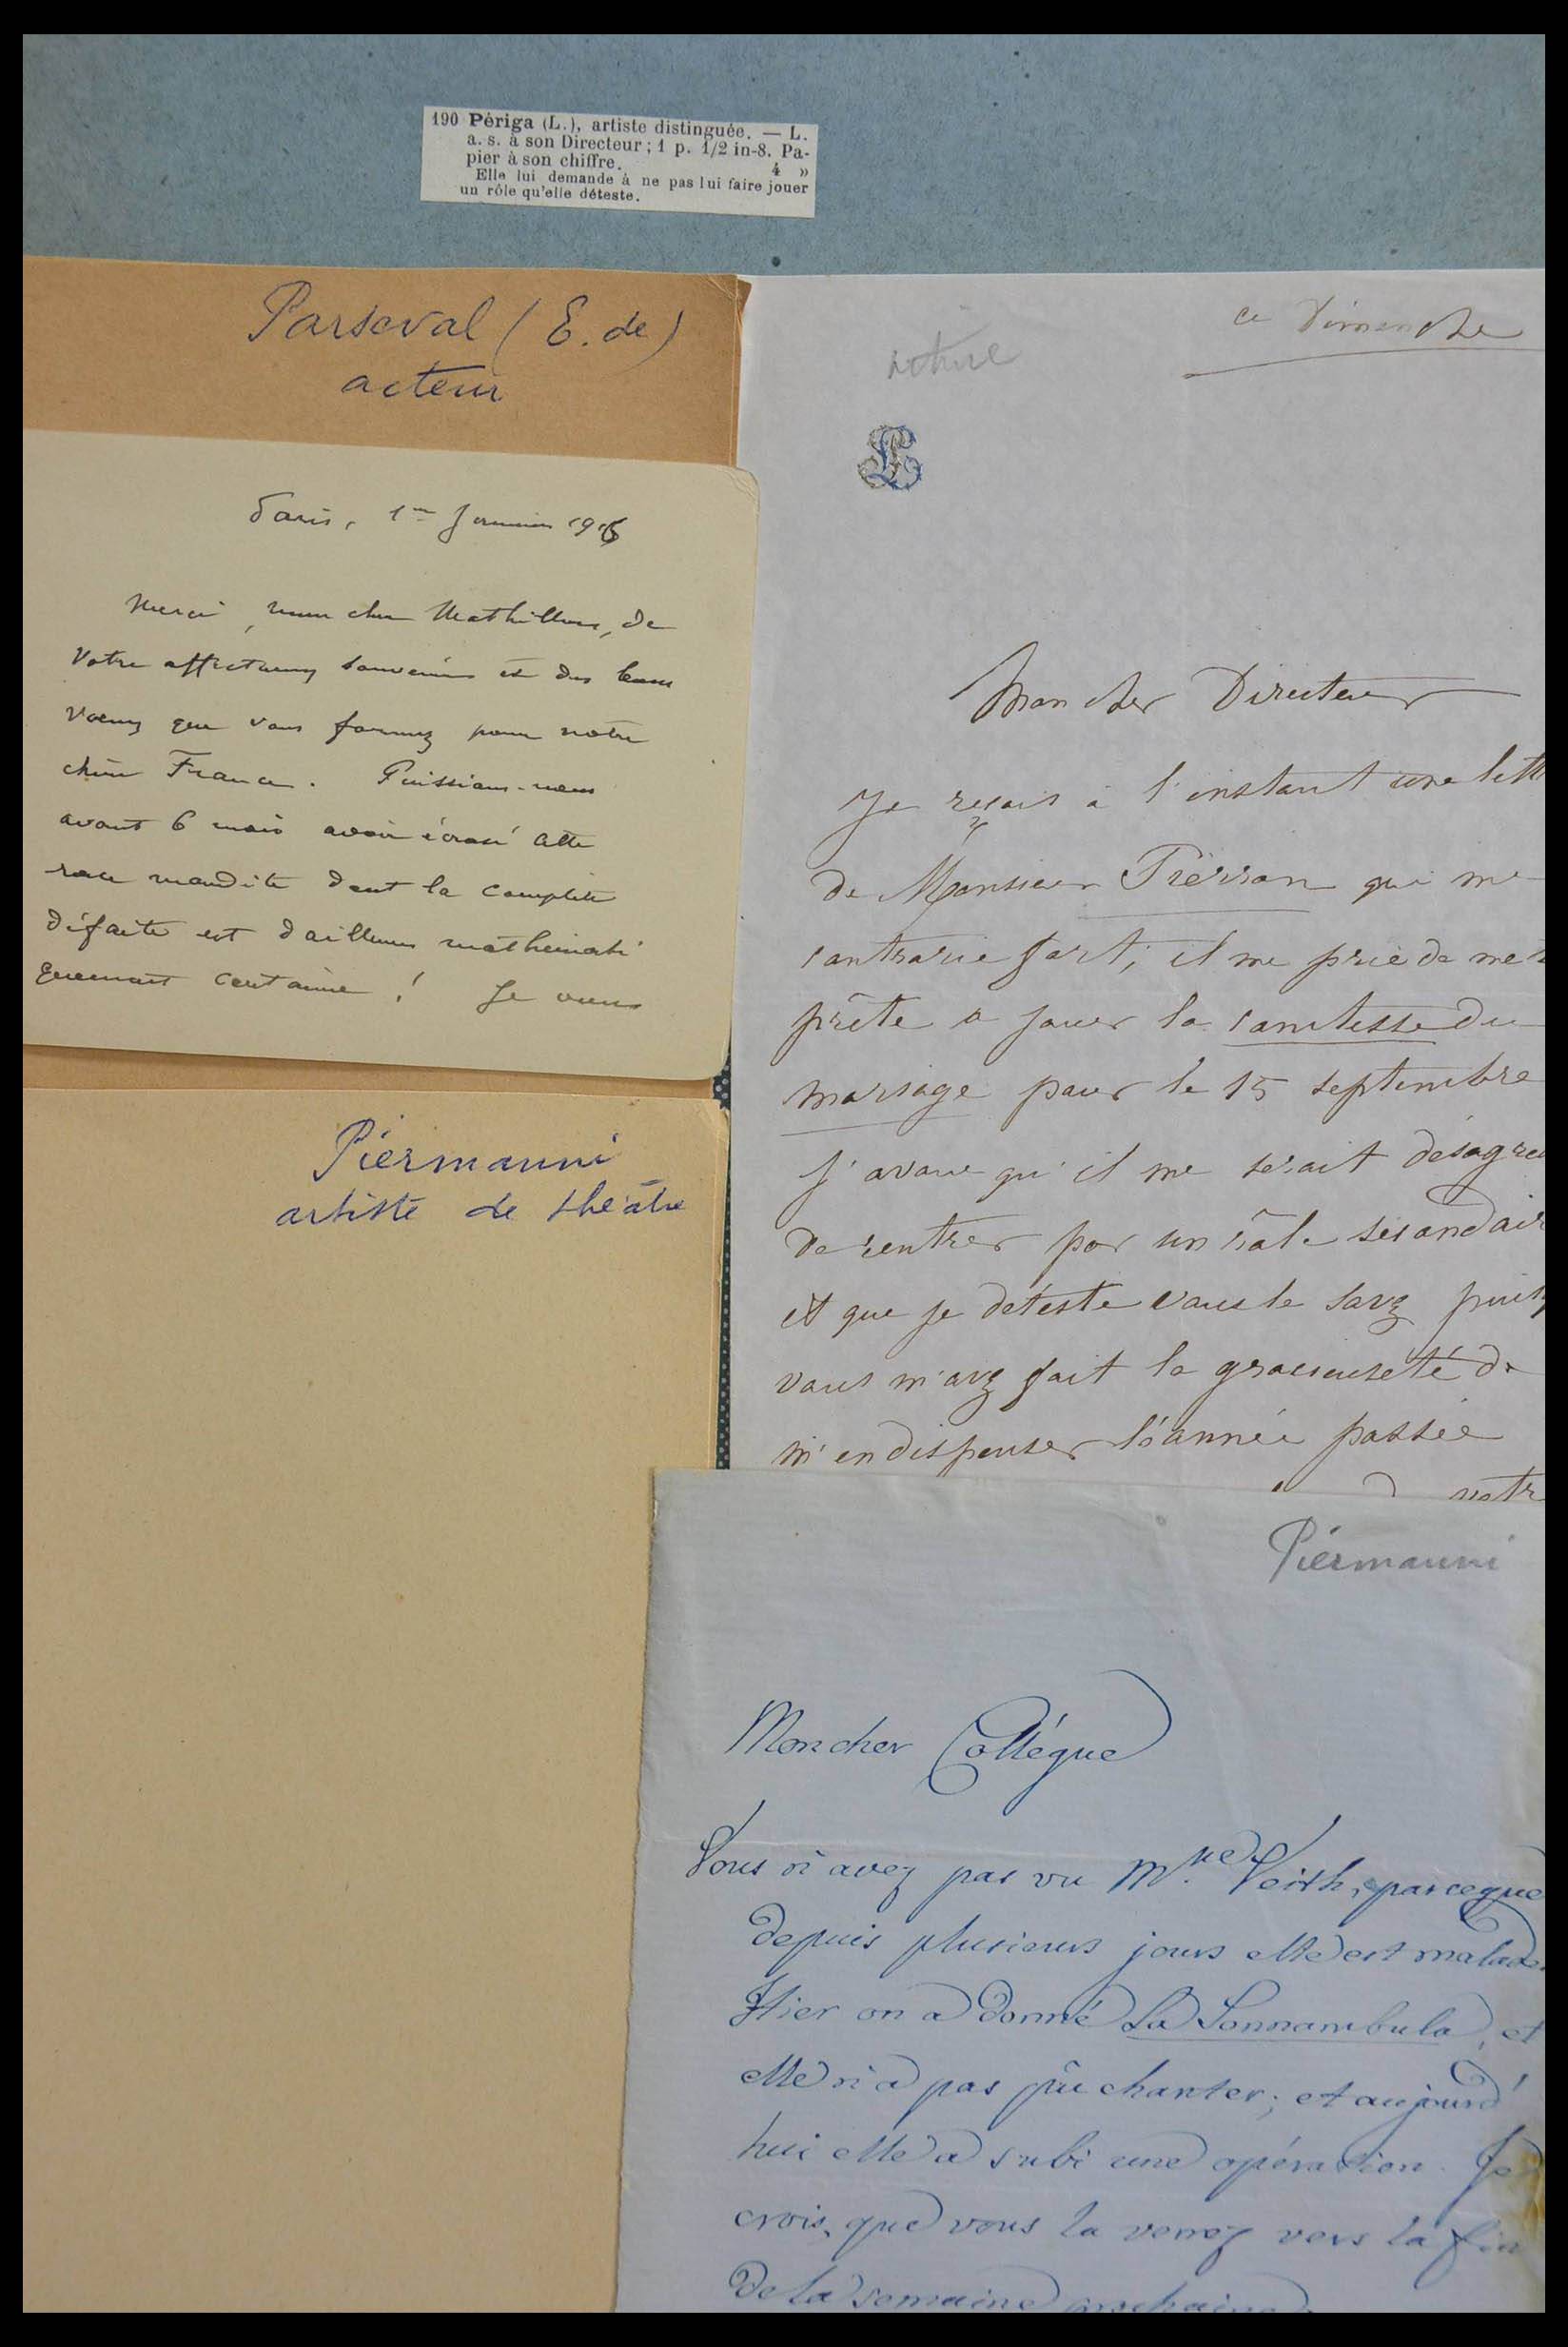 190 Périga (L.), artiste distinguée. — L.
a. s. à son Directeur; 1 p. 1/2 in-8. Pa-
pier à son chiffre. 4 »
Elle lui demande à ne pas lui faire jouer
un rôle qu'elle déteste.
Parseval (E. de)
acteur
Paris, 1er Janvier 1916
Merci, mon cher de
votre affectueux souvenir et des bons
vœux que vous formez pour notre
chère France. Puissions-nous
avant 6 mois avoir écrasé cette
race maudite dont la complète
défaite est d'ailleurs mathémati
quement certaine! Je
Piermanni
artiste de théâtre
ce Dimanche
Mon cher Directeur
Je reçois à l'instant une lett
de Monsieur Pierron qui me
contrarie fort; il me prie de me
prête a jouer la comtesse du
mariage pour le 15 septembre
J'avoue qu'il me serait désagré
de rentrer par un rôle secondair
et que je déteste vous le savez puis
vous m'avez fait la gracieuseté de
m'en dispenser l'année passée
notr
Piermanni
Mon cher Collégue
Vous n'avez pas vu Mlle Veith, parceque
depuis plusieurs jours elle est malade
Hier on a donné La Sonnambula, et
elle n'a pas pû chanter; et aujourd'
hui elle a subi une opération. Je
crois, que vous la verrez vers la fin
de la semaine prochaine